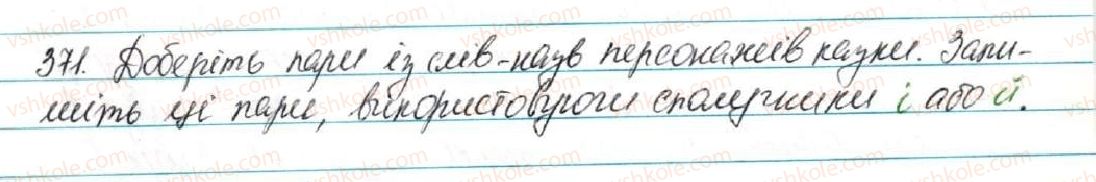 371. Доберіть пари із слів-назв персонажів казки. Запи-
шіть ці пари, використовуючи сполучники і або й.
vshkole.com